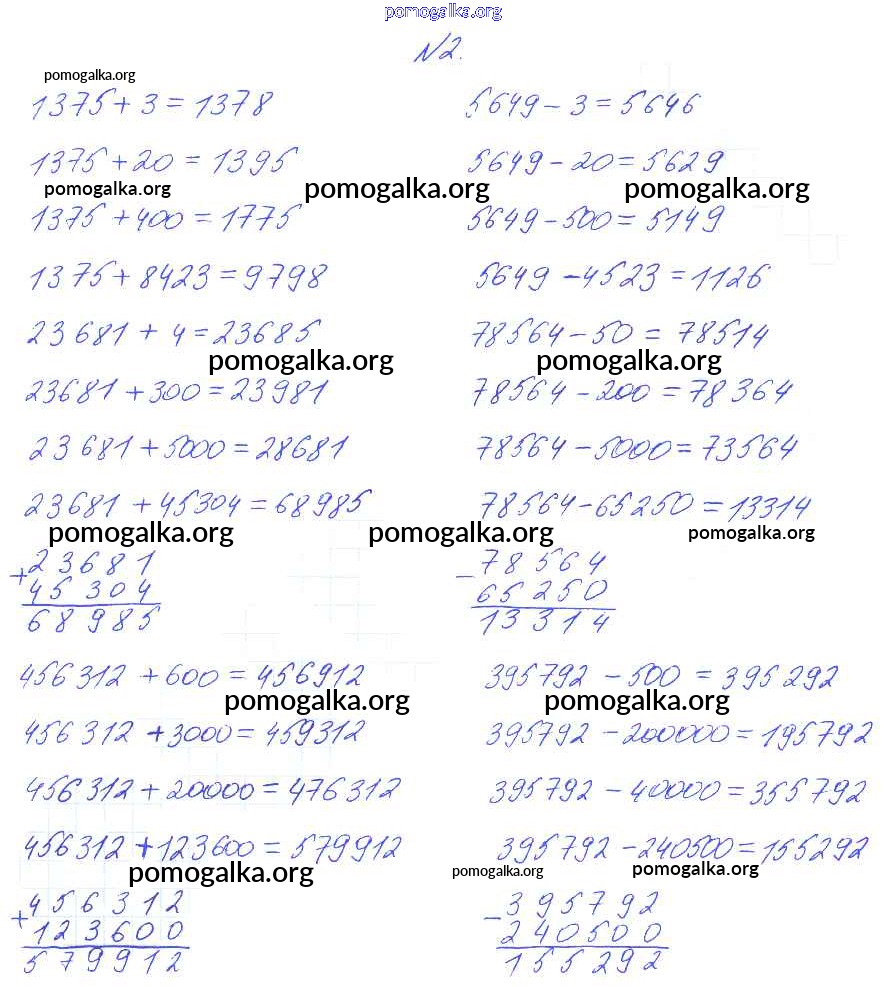 pomogalka.org
N2.
pomogalka.org
1375 + 3 = 1378 5649 - 3 = 5646
1375 + 20 = 1395 5649 - 20 = 5629
pomogalka.org pomogalka.org pomogalka.org
1375 + 400 = 1775 5649 - 500 = 5149
1375 + 8423 = 9798 5649 - 4523 = 1126
23681 + 4 = 23685 78564 - 50 = 78514
pomogalka.org pomogalka.org
23681 + 300 = 23981 78564 - 200 = 78364
23681 + 5000 = 28681 78564 - 5000 = 73564
23681 + 45304 = 68985 78564 - 65250 = 13314
pomogalka.org pomogalka.org pomogalka.org
+ 23681 - 78564
45304 65250
68985 13314
456312 + 600 = 456912 395792 - 500 = 395292
pomogalka.org pomogalka.org
456312 + 3000 = 459312 395792 - 200000 = 195792
456312 + 20000 = 476312 395792 - 40000 = 355792
456312 + 123600 = 579912 395792 - 240500 = 155292
pomogalka.org pomogalka.org pomogalka.org
+ 456312 - 395792
123600 240500
579912 155292